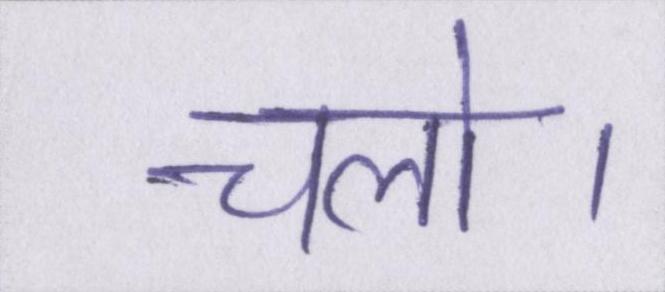 चलो।